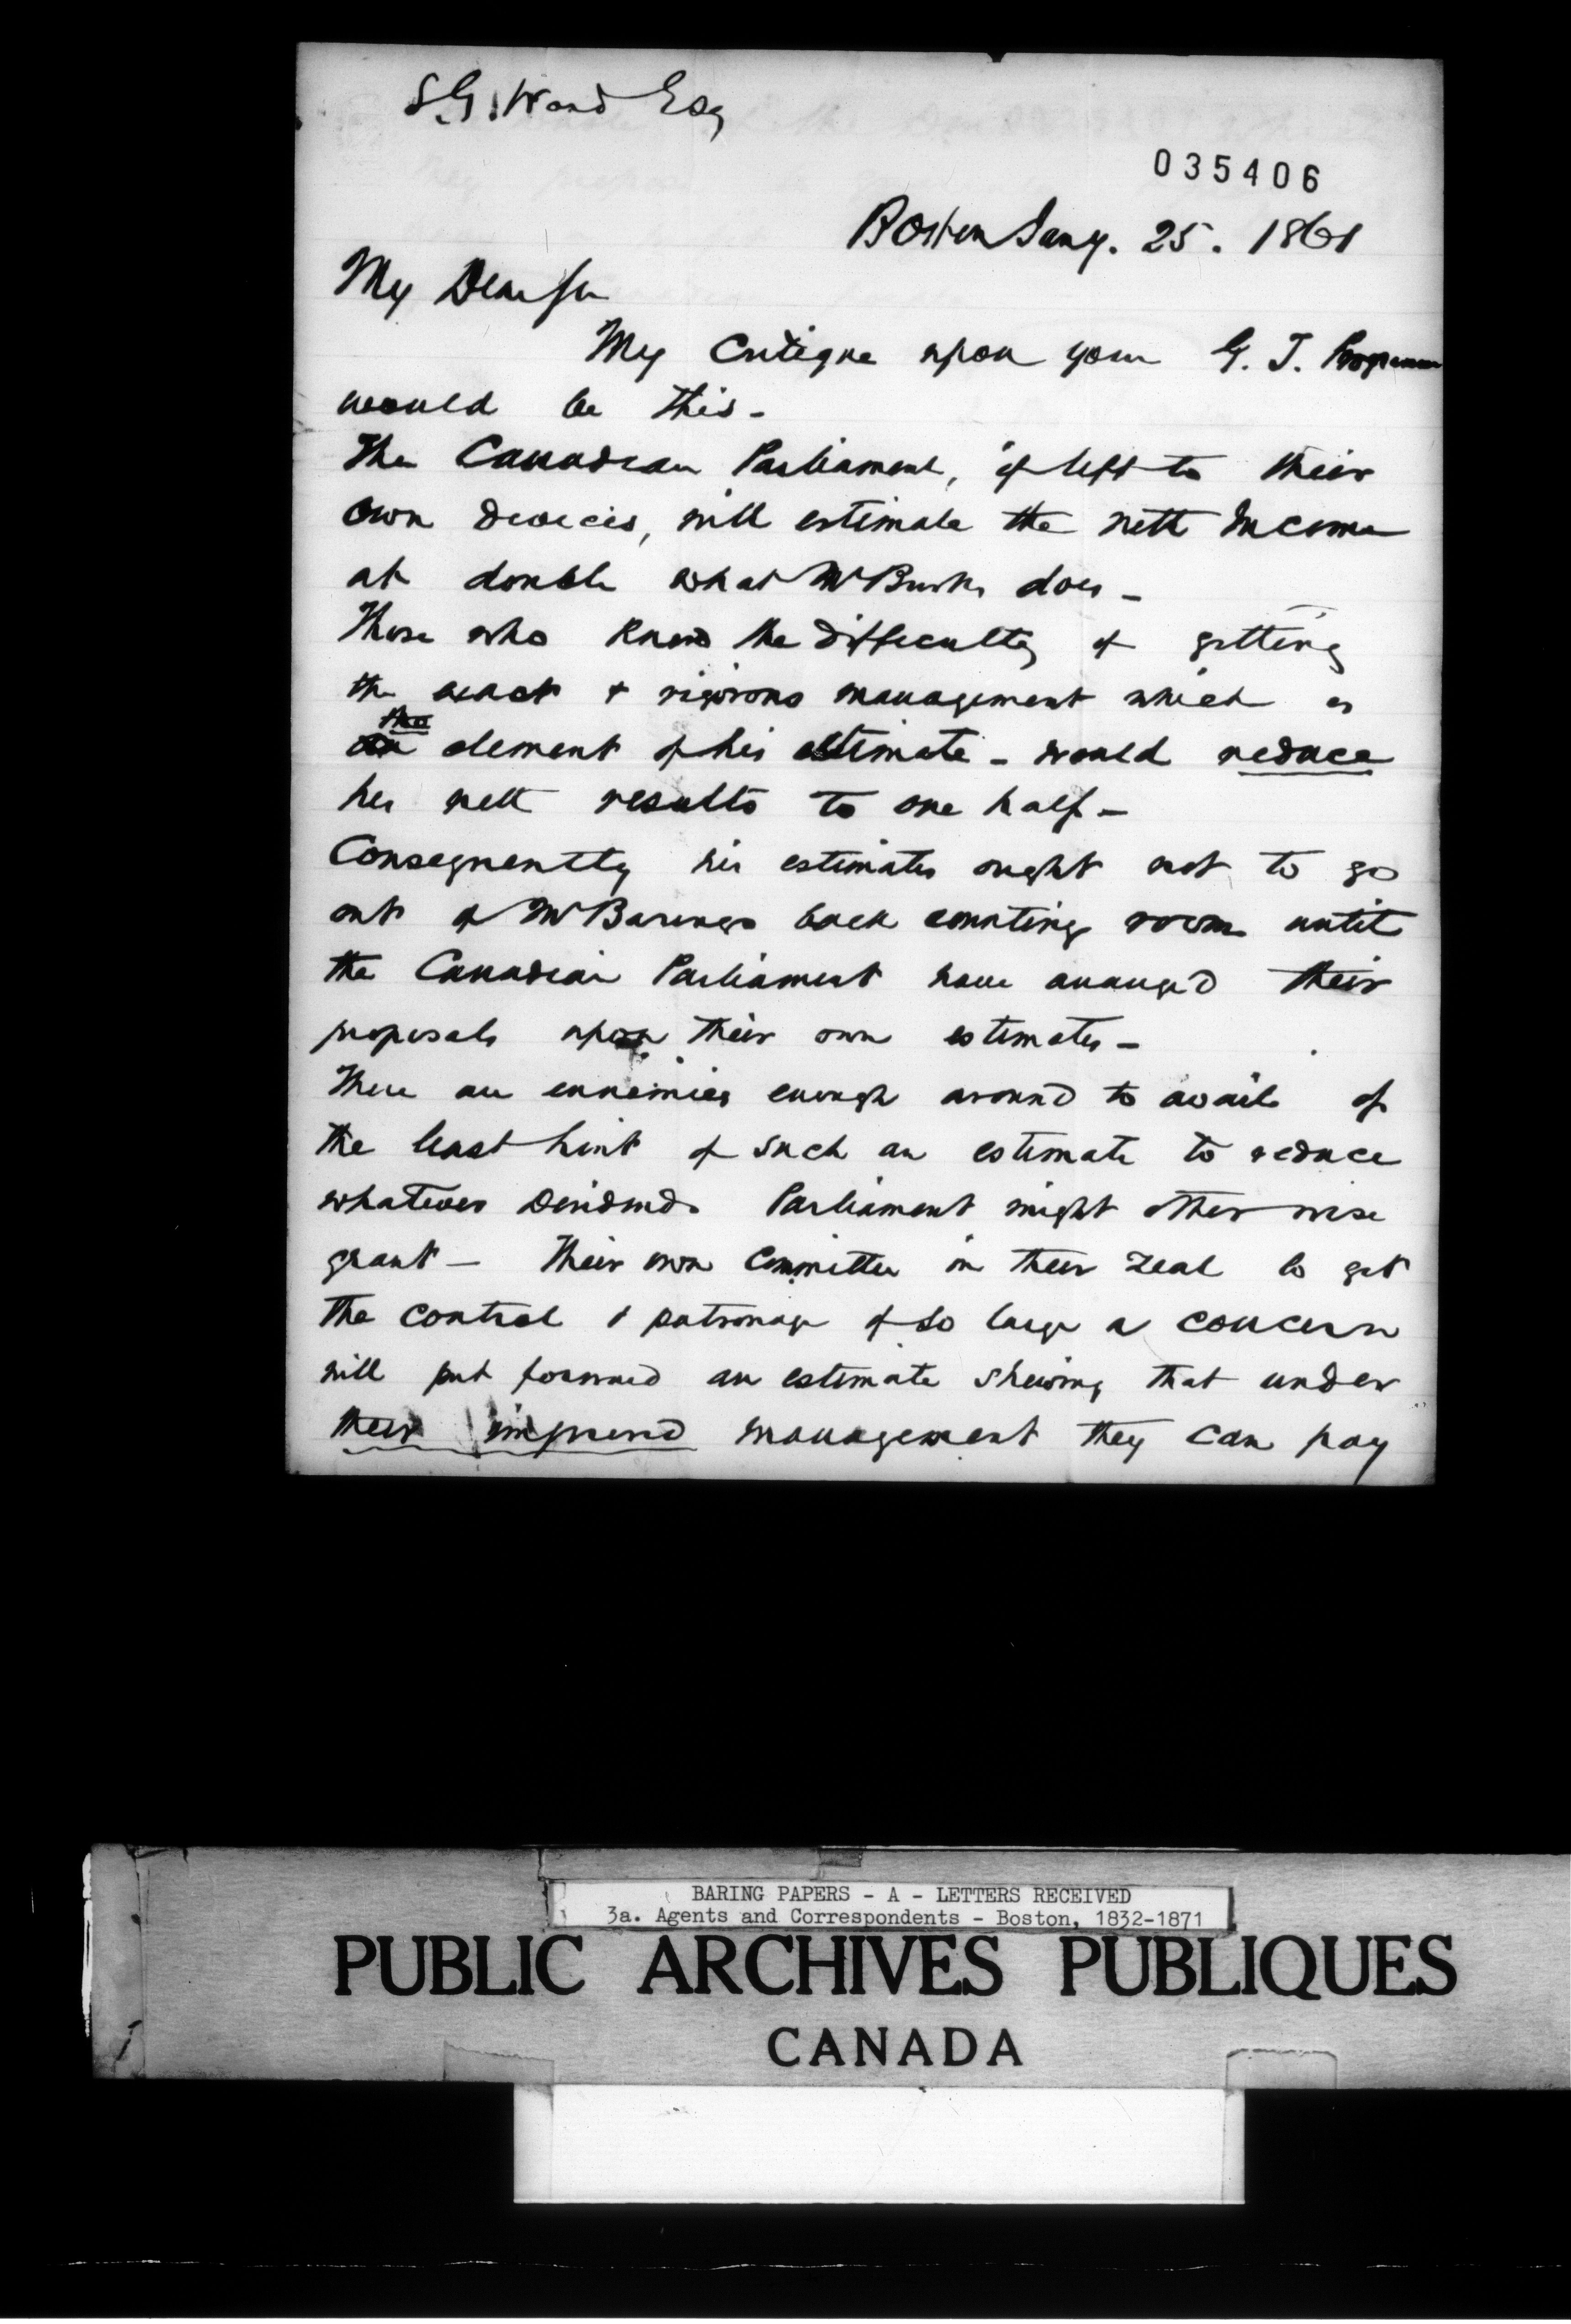 S. G. Ward Esq
035406
Boston Jany. 25. 1861
My Dear Sir
My Critique upon your G. T. Programme
would be this -
The Canadian Parliament, if left to their
own devices, will estimate the nett Income
at double what Mr does -
Those who know the difficulty of getting
the exact & rigorous management which is
the element of his estimate - would reduce
his nett results to one half -
Consequently his estimates ought not to go
out of Mr Barings back counting room until
the Canadian Parliament have arranged their
proposals upon their own estimates -
There are ennemies enough around to avail of
the least hint of such an estimate to reduce
whatever Dividends Parliament might other wise
grant - Their own Committee in their zeal to get
the control & patronage of so large a concern
will put forward an estimate shewing that under
their improved management they can pay
BARING PAPERS - A - LETTERS RECEIVED
3a. Agents and Correspondents - Boston, 1832-1871
PUBLIC ARCHIVES PUBLIQUES
CANADA